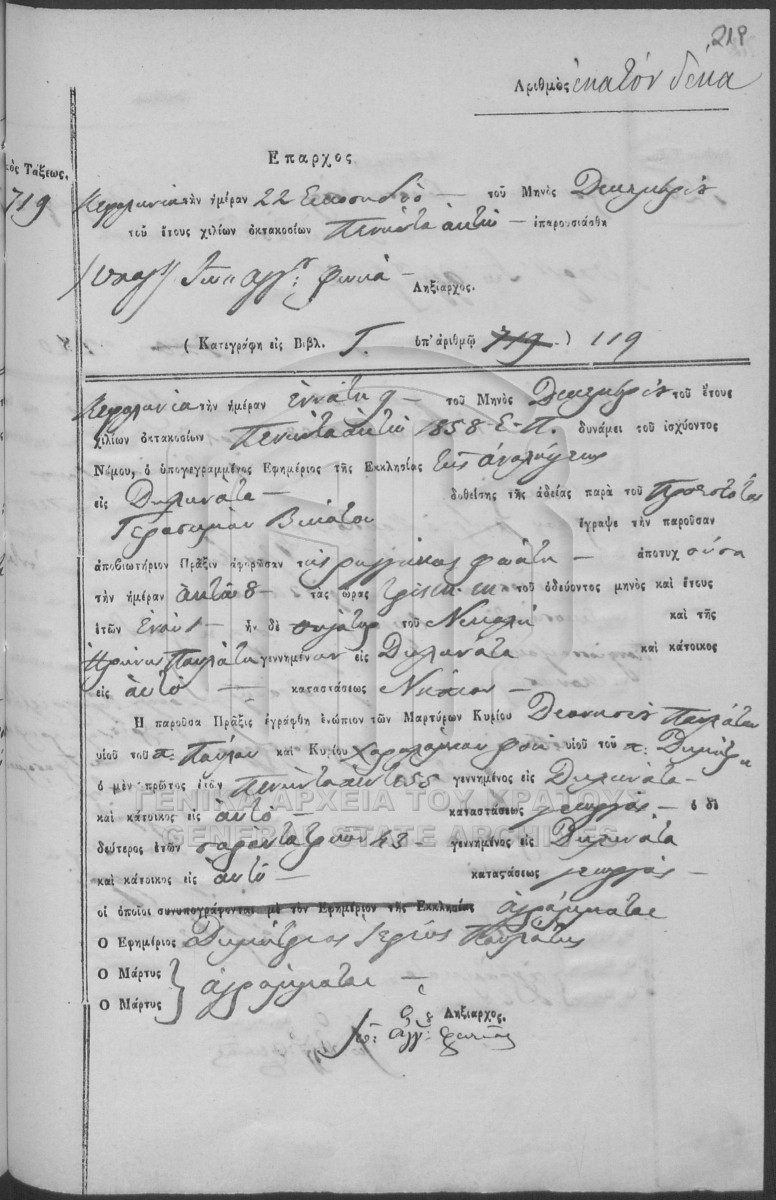 219
Ἀριθμὸς ἑκατὸν δέκα
Επαρχος
κὸς Τάξεως.
719
Κεφαλληνία τὴν ἡμέραν 22 Εικοσιδύο — τοῦ Μηνὸς Δεκεμβρίου
τοῦ ἔτους χιλίων ὀκτακοσίων Πενῆντα ὀκτώ — ἐπαρουσιάσθη
φωκά — Ληξίαρχος.
( Κατεγράφη εἰς Βιβλ. Γ. ὑπ' ἀριθμῷ 719 ) 119
Κεφαλληνία τὴν ἡμέραν ἐννάτη 9 — τοῦ Μηνὸς Δεκεμβρίου τοῦ ἔτους
χιλίων ὀκτακοσίων Πενῆντα ὀκτώ 1858 - Ε - Π. δυνάμει τοῦ ἰσχύοντος
Νόμου, ὁ ὑπογεγραμμένος Ἐφημέριος τῆς Ἐκκλησίας τῆς ἀναλήψεως
εἰς Διλινάτα — δοθείσης τῆς ἀδείας παρὰ τοῦ
Γερασίμου ἔγραψε τὴν παροῦσαν
ἀποβιωτήριον Πρᾶξιν ἀφορῶσαν — ἀποτυχούσα
τὴν ἡμέραν ὀκτώ 8 — τὰς ὥρας τρῖς τοῦ ὁδεύοντος μηνὸς καὶ ἔτους
ἐτῶν ἑνοῦ 1 — ἦν δὲ θυγάτηρ τοῦ Νικολῆ καὶ τῆς
Παυλάτου γεννημένον εἰς Διλινάτα καὶ κάτοικος
εἰς αὐτό — καταστάσεως Νήπιον —
Ἡ παροῦσα Πρᾶξις ἐγράφθη ἐνώπιον τῶν Μαρτύρων Κυρίου Διονησίου Παυλάτου
υἱοῦ τοῦ π. Παύλου καὶ Κυρίου Χαραλάμπου φωκᾶ υἱοῦ τοῦ π: Δημήτρη
ὁ μὲν πρῶτος ἐτῶν 55 γεννημένος εἰς Διλινάτα —
καὶ κάτοικος εἰς αὐτό — καταστάσεως γεωργός — ὁ δὲ
δεύτερος ἐτῶν σαράντα τριῶν 43 — γεννημένος εἰς Διλινάτα
καὶ κάτοικος εἰς αὐτό — καταστάσεως γεωργός —
οἱ ὁποῖοι συνυπογράφονται μὲ τὸν Ἐφημέριον τῆς Ἐκκλησίας ἀγράμματοι
Ο Ἐφημέριος Δημήτριος Ιερεύς Παυλάτος
Ο Μάρτυς
ἀγράμματοι —
Ο Μάρτυς
Ο Ληξίαρχος.
φωκᾶς
ΓΕΝΙΚΑ ΑΡΧΕΙΑ ΤΟΥ ΚΡΑΤΟΥΣ
GENERAL STATE ARCHIVES